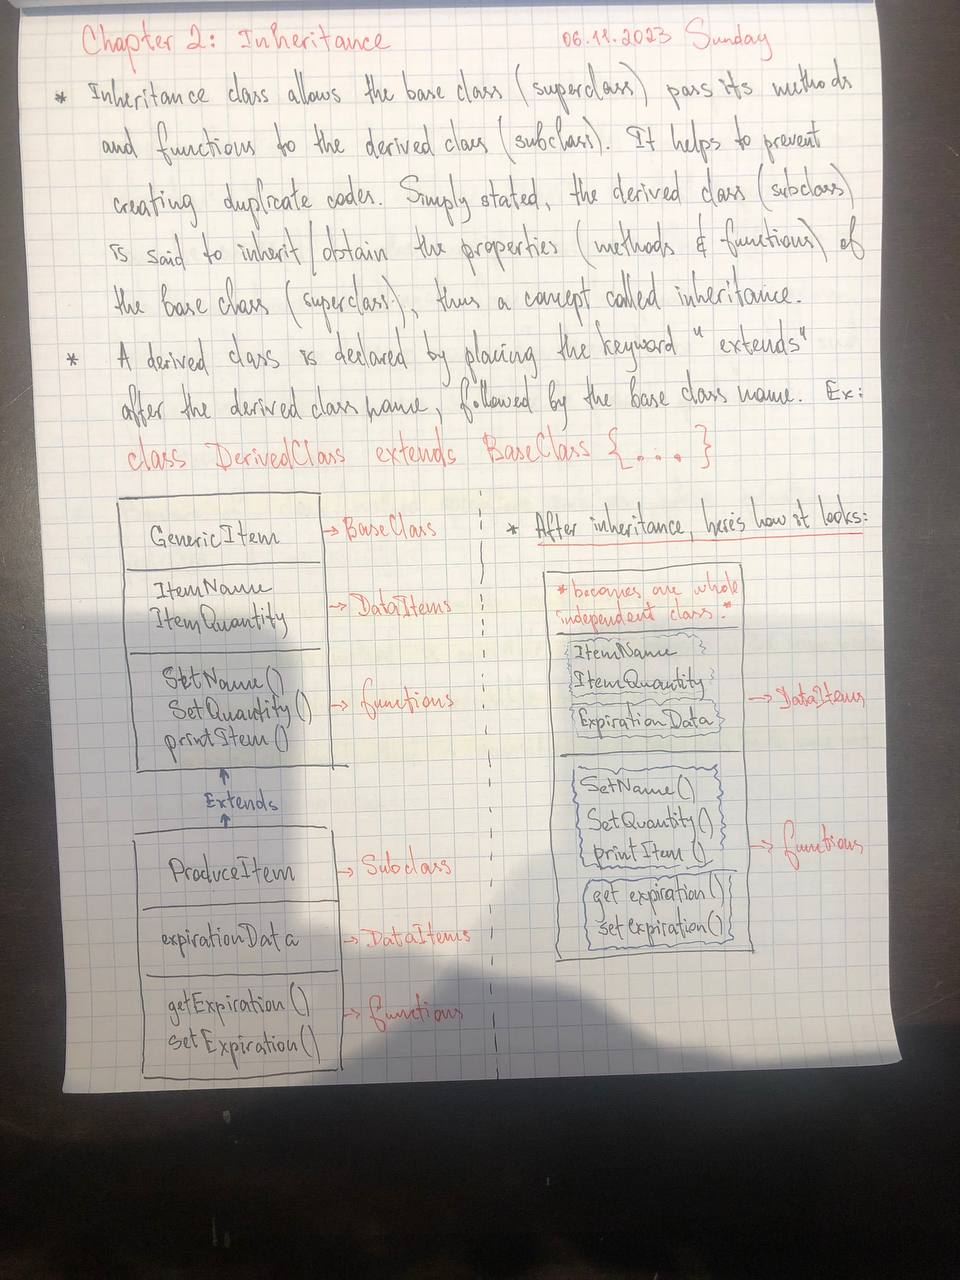 Chapter 2: Inheritance
06.11.2023 Sunday
* Inheritance class allows the base class (superclass) pass its methods
and functions to the derived class (subclass). It helps to prevent
creating duplicate codes. Simply stated, the derived class (subclass)
is said to inherit/obtain the properties (methods & functions) of
the base class (superclass), thus a concept called inheritance.
* A derived class is declared by placing the keyword "extends"
after the derived class name, followed by the base class name. Ex:
class DerivedClass extends BaseClass {...}
GenericItem
→ BaseClass
ItemName
ItemQuantity
→ DataItems
SetName()
SetQuantity()
printItem()
→ functions
Extends
ProduceItem
→ Subclass
expirationData
→ DataItems
getExpiration()
setExpiration()
→ functions
* After inheritance, here's how it looks:
*becomes one whole
independent class.*
ItemName
ItemQuantity
ExpirationData
→ DataItems
SetName()
SetQuantity()
printItem()
get expiration()
set expiration()
→ functions